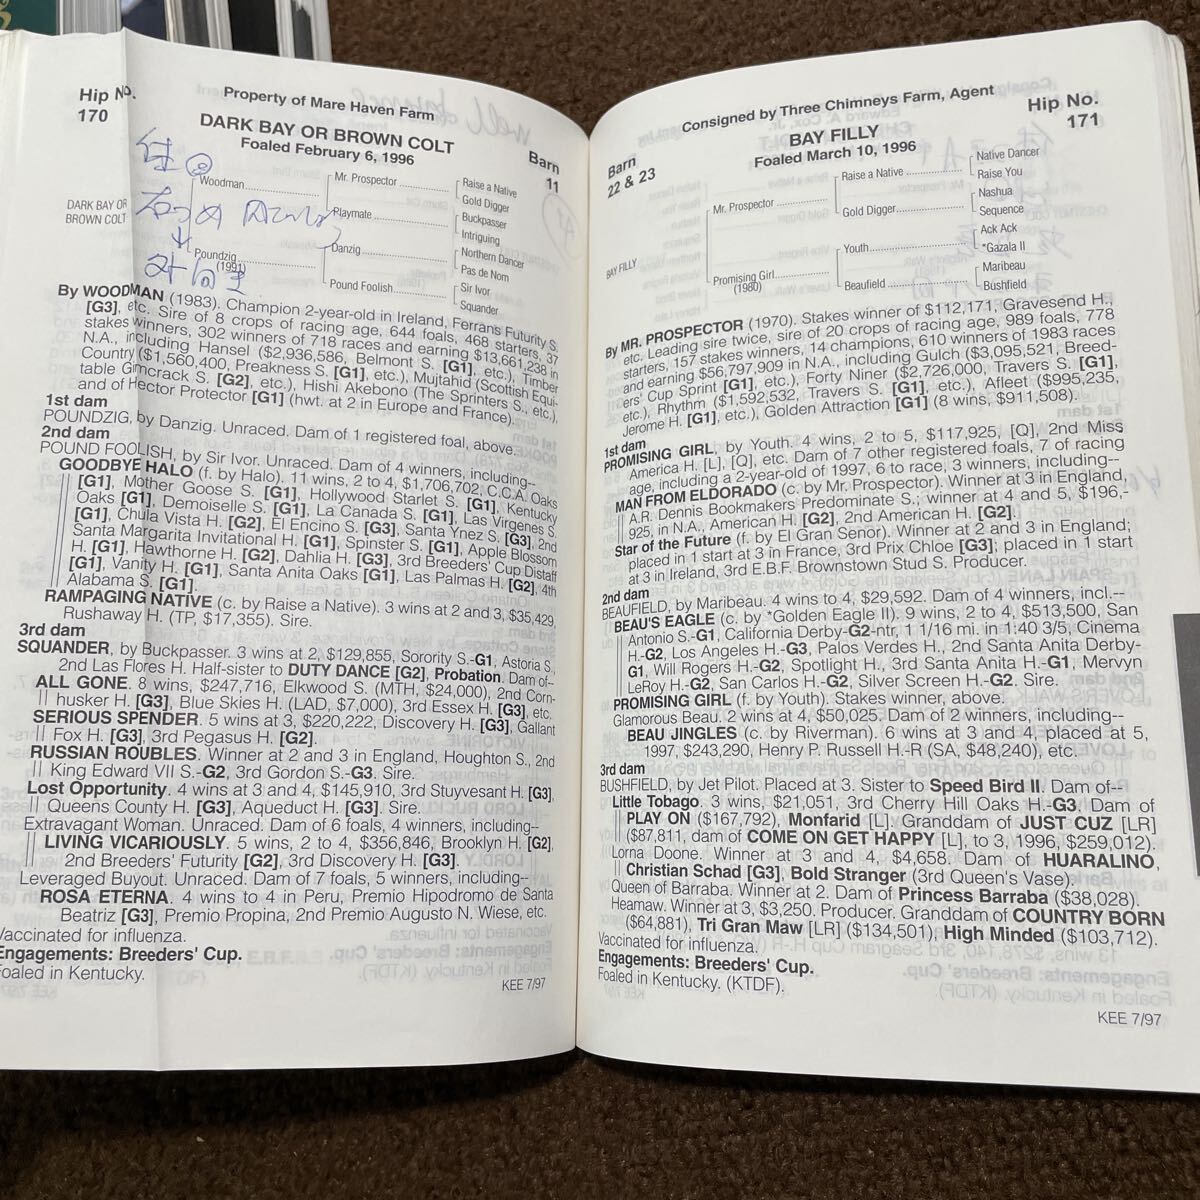 Hip No.
170
Property of Mare Haven Farm
DARK BAY OR BROWN COLT
Foaled February 6, 1996
Barn
11
DARK BAY OR
BROWN COLT
Woodman
Mr. Prospector
Raise a Native
Gold Digger
Playmate
Buckpasser
Intriguing
Poundzig
(1991)
Danzig
Northern Dancer
Pas de Nom
Pound Foolish
Sir Ivor
Squander
By WOODMAN (1983). Champion 2-year-old in Ireland, Ferrans Futurity S.
[G3], etc. Sire of 8 crops of racing age, 644 foals, 468 starters, 37
stakes winners, 302 winners of 718 races and earning $13,661,238 in
N.A., including Hansel ($2,936,586, Belmont S. [G1], etc.), Timber
Country ($1,560,400, Preakness S. [G1], etc.), Mujtahid (Scottish Equi-
table Gimcrack S. [G2], etc.), Hishi Akebono (The Sprinters S., etc.),
and of Hector Protector [G1] (hwt. at 2 in Europe and France).
1st dam
POUNDZIG, by Danzig. Unraced. Dam of 1 registered foal, above.
2nd dam
POUND FOOLISH, by Sir Ivor. Unraced. Dam of 4 winners, including--
GOODBYE HALO (f. by Halo). 11 wins, 2 to 4, $1,706,702, C.C.A. Oaks
[G1], Mother Goose S. [G1], Hollywood Starlet S. [G1], Kentucky
Oaks [G1], Demoiselle S. [G1], La Canada S. [G1], Las Virgenes S.
[G1], Chula Vista H. [G2], El Encino S. [G3], Santa Ynez S. [G3], 2nd
Santa Margarita Invitational H. [G1], Spinster S. [G1], Apple Blossom
H. [G1], Hawthorne H. [G2], Dahlia H. [G3], 3rd Breeders' Cup Distaff
[G1], Vanity H. [G1], Santa Anita Oaks [G1], Las Palmas H. [G2], 4th
Alabama S. [G1].
RAMPAGING NATIVE (c. by Raise a Native). 3 wins at 2 and 3, $35,429,
Rushaway H. (TP, $17,355). Sire.
3rd dam
SQUANDER, by Buckpasser. 3 wins at 2, $129,855, Sorority S.-G1, Astoria S.,
2nd Las Flores H. Half-sister to DUTY DANCE [G2], Probation. Dam of--
ALL GONE. 8 wins, $247,716, Elkwood S. (MTH, $24,000), 2nd Corn-
husker H. [G3], Blue Skies H. (LAD, $7,000), 3rd Essex H. [G3], etc.
SERIOUS SPENDER. 5 wins at 3, $220,222, Discovery H. [G3], Gallant
Fox H. [G3], 3rd Pegasus H. [G2].
RUSSIAN ROUBLES. Winner at 2 and 3 in England, Houghton S., 2nd
King Edward VII S.-G2, 3rd Gordon S.-G3. Sire.
Lost Opportunity. 4 wins at 3 and 4, $145,910, 3rd Stuyvesant H. [G3],
Queens County H. [G3], Aqueduct H. [G3]. Sire.
Extravagant Woman. Unraced. Dam of 6 foals, 4 winners, including--
LIVING VICARIOUSLY. 5 wins, 2 to 4, $356,846, Brooklyn H. [G2],
2nd Breeders' Futurity [G2], 3rd Discovery H. [G3].
Leveraged Buyout. Unraced. Dam of 7 foals, 5 winners, including--
ROSA ETERNA. 4 wins to 4 in Peru, Premio Hipodromo de Santa
Beatriz [G3], Premio Propina, 2nd Premio Augusto N. Wiese, etc.
Vaccinated for influenza.
Engagements: Breeders' Cup.
Foaled in Kentucky.
KEE 7/97
Consigned by Three Chimneys Farm, Agent
Hip No.
171
BAY FILLY
Foaled March 10, 1996
Barn
22 & 23
BAY FILLY
Mr. Prospector
Raise a Native
Native Dancer
Raise You
Gold Digger
Nashua
Sequence
Promising Girl
(1980)
Youth
Ack Ack
*Gazala II
Beaufield
Maribeau
Bushfield
By MR. PROSPECTOR (1970). Stakes winner of $112,171, Gravesend H.,
etc. Leading sire twice, sire of 20 crops of racing age, 989 foals, 778
starters, 157 stakes winners, 14 champions, 610 winners of 1983 races
and earning $56,797,909 in N.A., including Gulch ($3,095,521, Breed-
ers' Cup Sprint [G1], etc.), Forty Niner ($2,726,000, Travers S. [G1],
etc.), Rhythm ($1,592,532, Travers S. [G1], etc.), Afleet ($995,235,
Jerome H. [G1], etc.), Golden Attraction [G1] (8 wins, $911,508).
1st dam
PROMISING GIRL, by Youth. 4 wins, 2 to 5, $117,925, [Q], 2nd Miss
America H. [L], [Q], etc. Dam of 7 other registered foals, 7 of racing
age, including a 2-year-old of 1997, 6 to race, 3 winners, including--
MAN FROM ELDORADO (c. by Mr. Prospector). Winner at 3 in England,
A.R. Dennis Bookmakers Predominate S.; winner at 4 and 5, $196,-
925, in N.A., American H. [G2], 2nd American H. [G2].
Star of the Future (f. by El Gran Senor). Winner at 2 and 3 in England;
placed in 1 start at 3 in France, 3rd Prix Chloe [G3]; placed in 1 start
at 3 in Ireland, 3rd E.B.F. Brownstown Stud S. Producer.
2nd dam
BEAUFIELD, by Maribeau. 4 wins to 4, $29,592. Dam of 4 winners, incl.--
BEAU'S EAGLE (c. by *Golden Eagle II). 9 wins, 2 to 4, $513,500, San
Antonio S.-G1, California Derby-G2-ntr, 1 1/16 mi. in 1:40 3/5, Cinema
H.-G2, Los Angeles H.-G3, Palos Verdes H., 2nd Santa Anita Derby-
G1, Will Rogers H.-G2, Spotlight H., 3rd Santa Anita H.-G1, Mervyn
LeRoy H.-G2, San Carlos H.-G2, Silver Screen H.-G2. Sire.
PROMISING GIRL (f. by Youth). Stakes winner, above.
Glamorous Beau. 2 wins at 4, $50,025. Dam of 2 winners, including--
BEAU JINGLES (c. by Riverman). 6 wins at 3 and 4, placed at 5,
1997, $243,290, Henry P. Russell H.-R (SA, $48,240), etc.
3rd dam
BUSHFIELD, by Jet Pilot. Placed at 3. Sister to Speed Bird II. Dam of--
Little Tobago. 3 wins, $21,051, 3rd Cherry Hill Oaks H.-G3, Dam of
PLAY ON ($167,792), Monfarid [L]. Granddam of JUST CUZ [LR]
($87,811, dam of COME ON GET HAPPY [L], to 3, 1996, $259,012).
Lorna Doone. Winner at 3 and 4, $4,658. Dam of HUARALINO,
Christian Schad [G3], Bold Stranger (3rd Queen's Vase).
Queen of Barraba. Winner at 2. Dam of Princess Barraba ($38,028).
Heamaw. Winner at 3, $3,250. Producer. Granddam of COUNTRY BORN
($64,881), Tri Gran Maw [LR] ($134,501), High Minded ($103,712).
Vaccinated for influenza.
Engagements: Breeders' Cup.
Foaled in Kentucky. (KTDF).
KEE 7/97